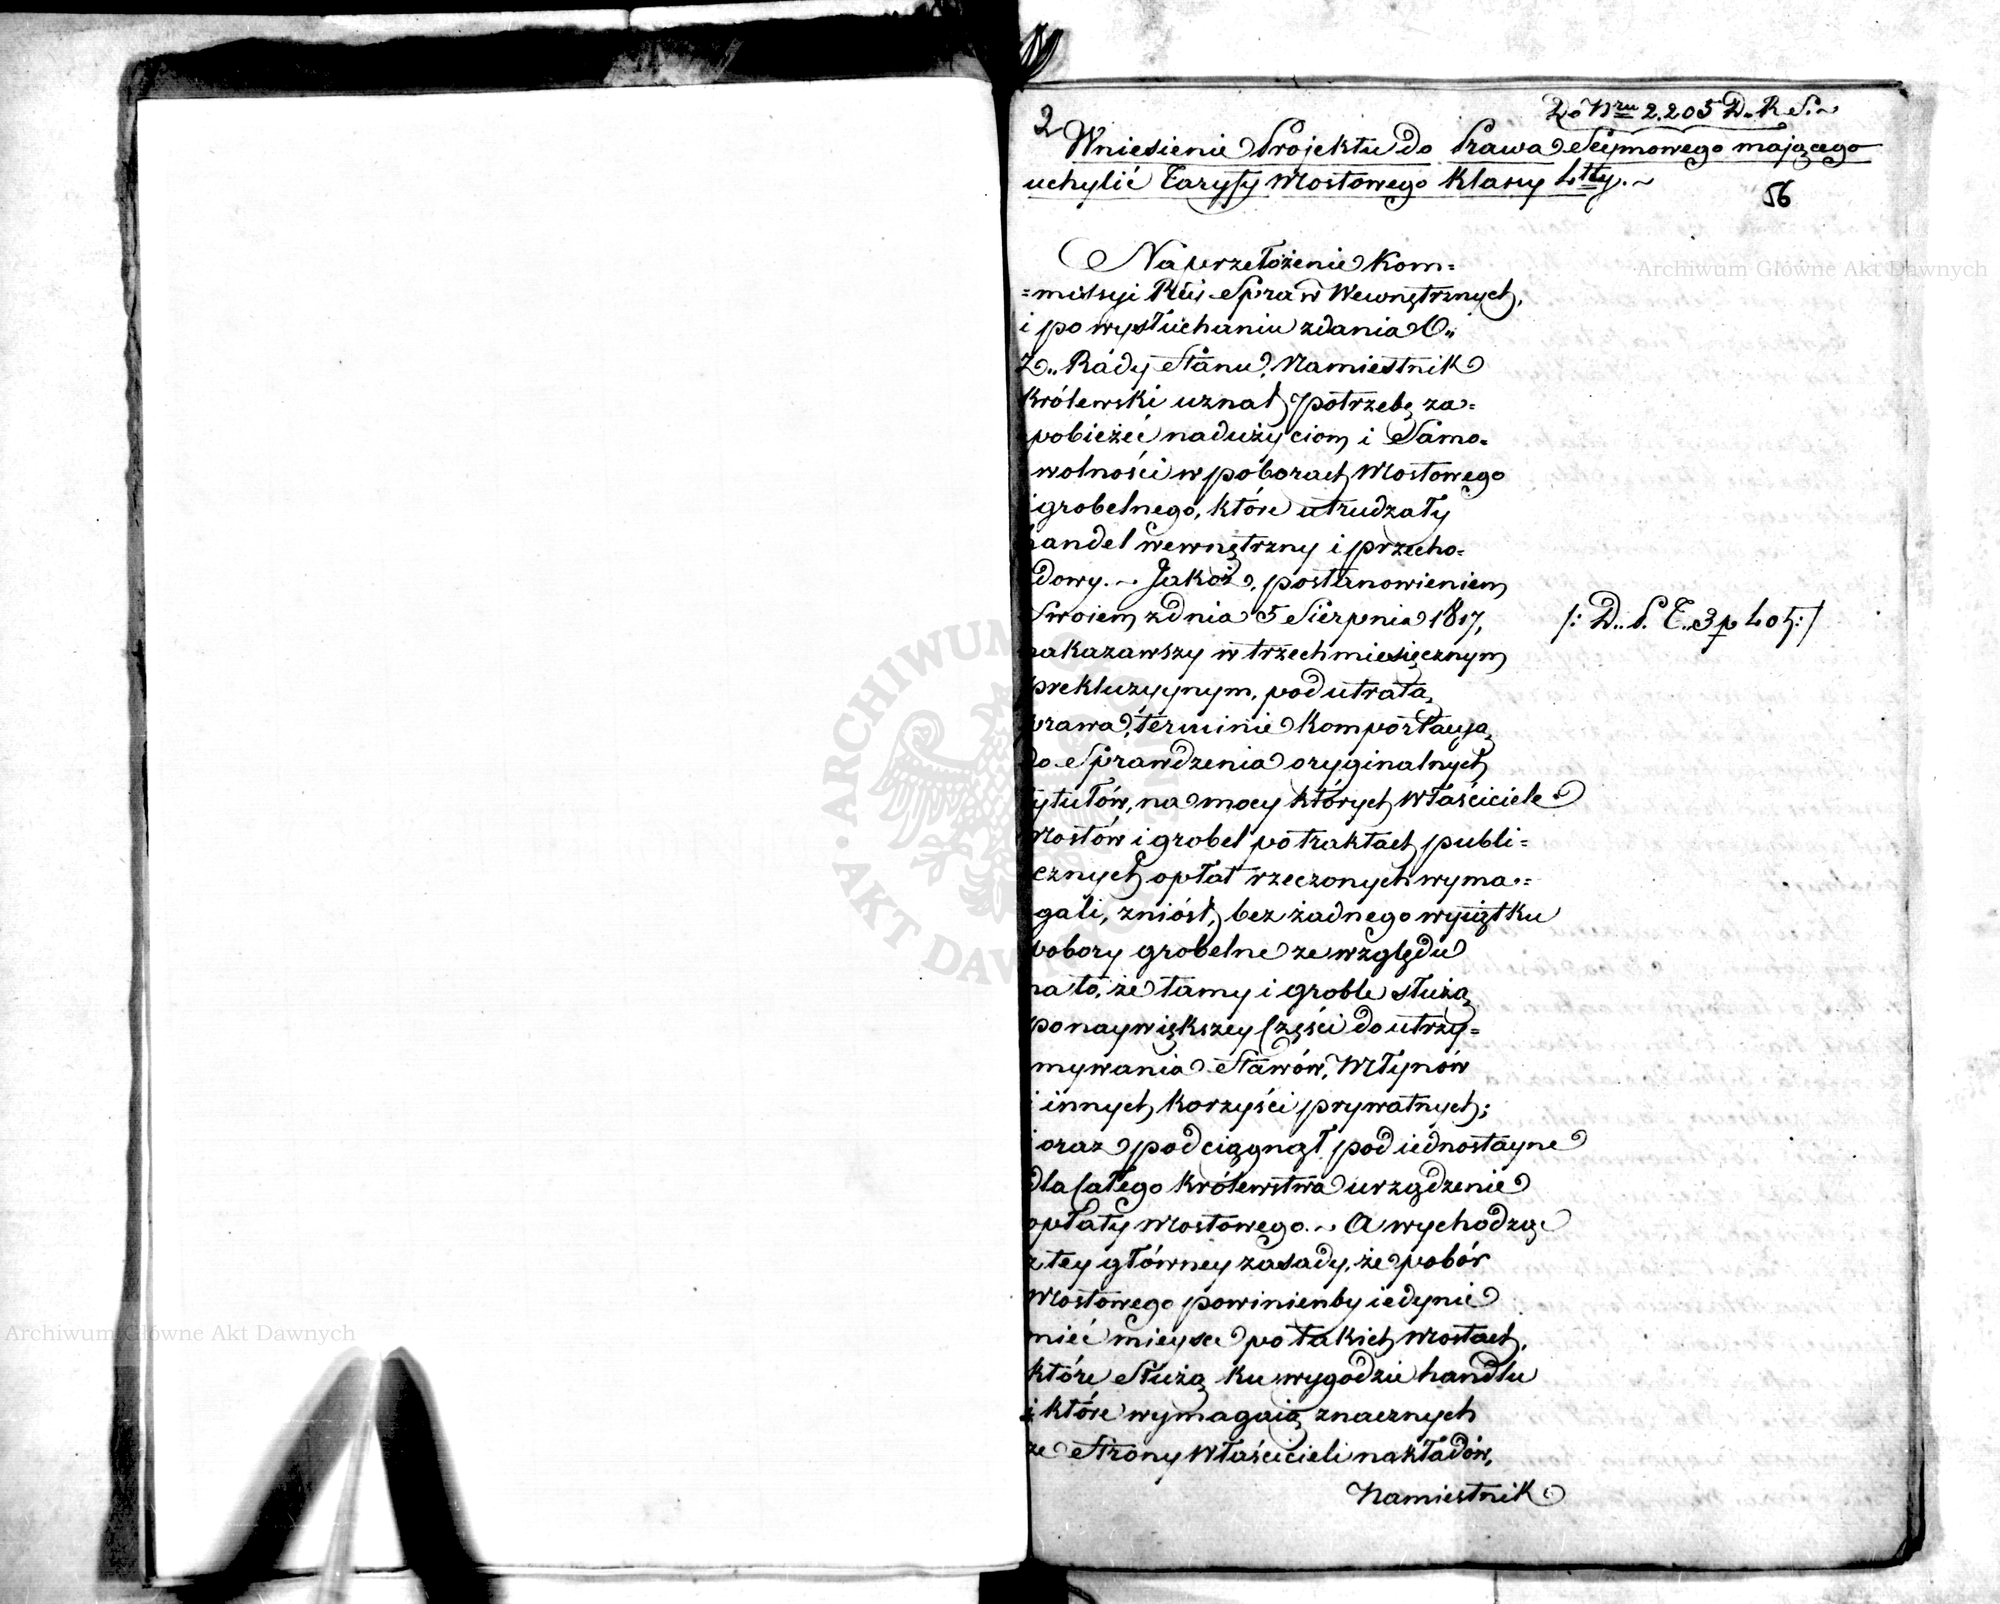 Do Nru 2.205 D. R. S.~
2
Wniesienie Projektu do Prawa Seymowego maiącego
uchylić Taryfy Mostowego Klassy 4tty.~
56
Na przełożenie Kom=
=missyi Rźj Spraw Wewnętrznych,
i po wysłuchaniu zdania O„
Z„ Rády Stanu, Namiestnik
Królewski uznał potrzebę za=
pobieżeć nadużyciom i Samo=
wolności w poborach Mostowego
i grobelnego, które utrudzały
handel wewnętrzny i przecho=
dowy.~ Jakoż, postanowieniem
Swoiem z dnia 5 Sierpnia 1817,
/: D.. P. T..3 p 401:/
nakazawszy w trzechmiesięcznym
prekluzyynym, pod utratą
prawa, terminie komportacyą
do Sprawdzenia oryginalnych
tytułów, na mocy których Właściciele
Mostów i grobel po traktach publi=
cznych opłat rzeczonych wyma=
gali, zniósł, bez żadnego wyiątku
pobory grobelne ze względu
na to, że tamy i groble służą
po naywiększey Części do utrzy=
mywania Stawów, Młynów
i innych korzyści prywatnych;
i oraz podciągnął pod iednostayne
dla Całego Królewstwa urządzenie
opłaty Mostowego.~ A wychodząc
z tey głównéy zasady, że pobór
Mostowego powinienby iedynie
mieć mieysce po takich Mostach,
które Służą ku wygodzie handlu
i które wymagaią znacznych
ze Strony Właścicieli nakładów,
Namiestnik
Archiwum Główne Akt Dawnych
Archiwum Główne Akt Dawnych